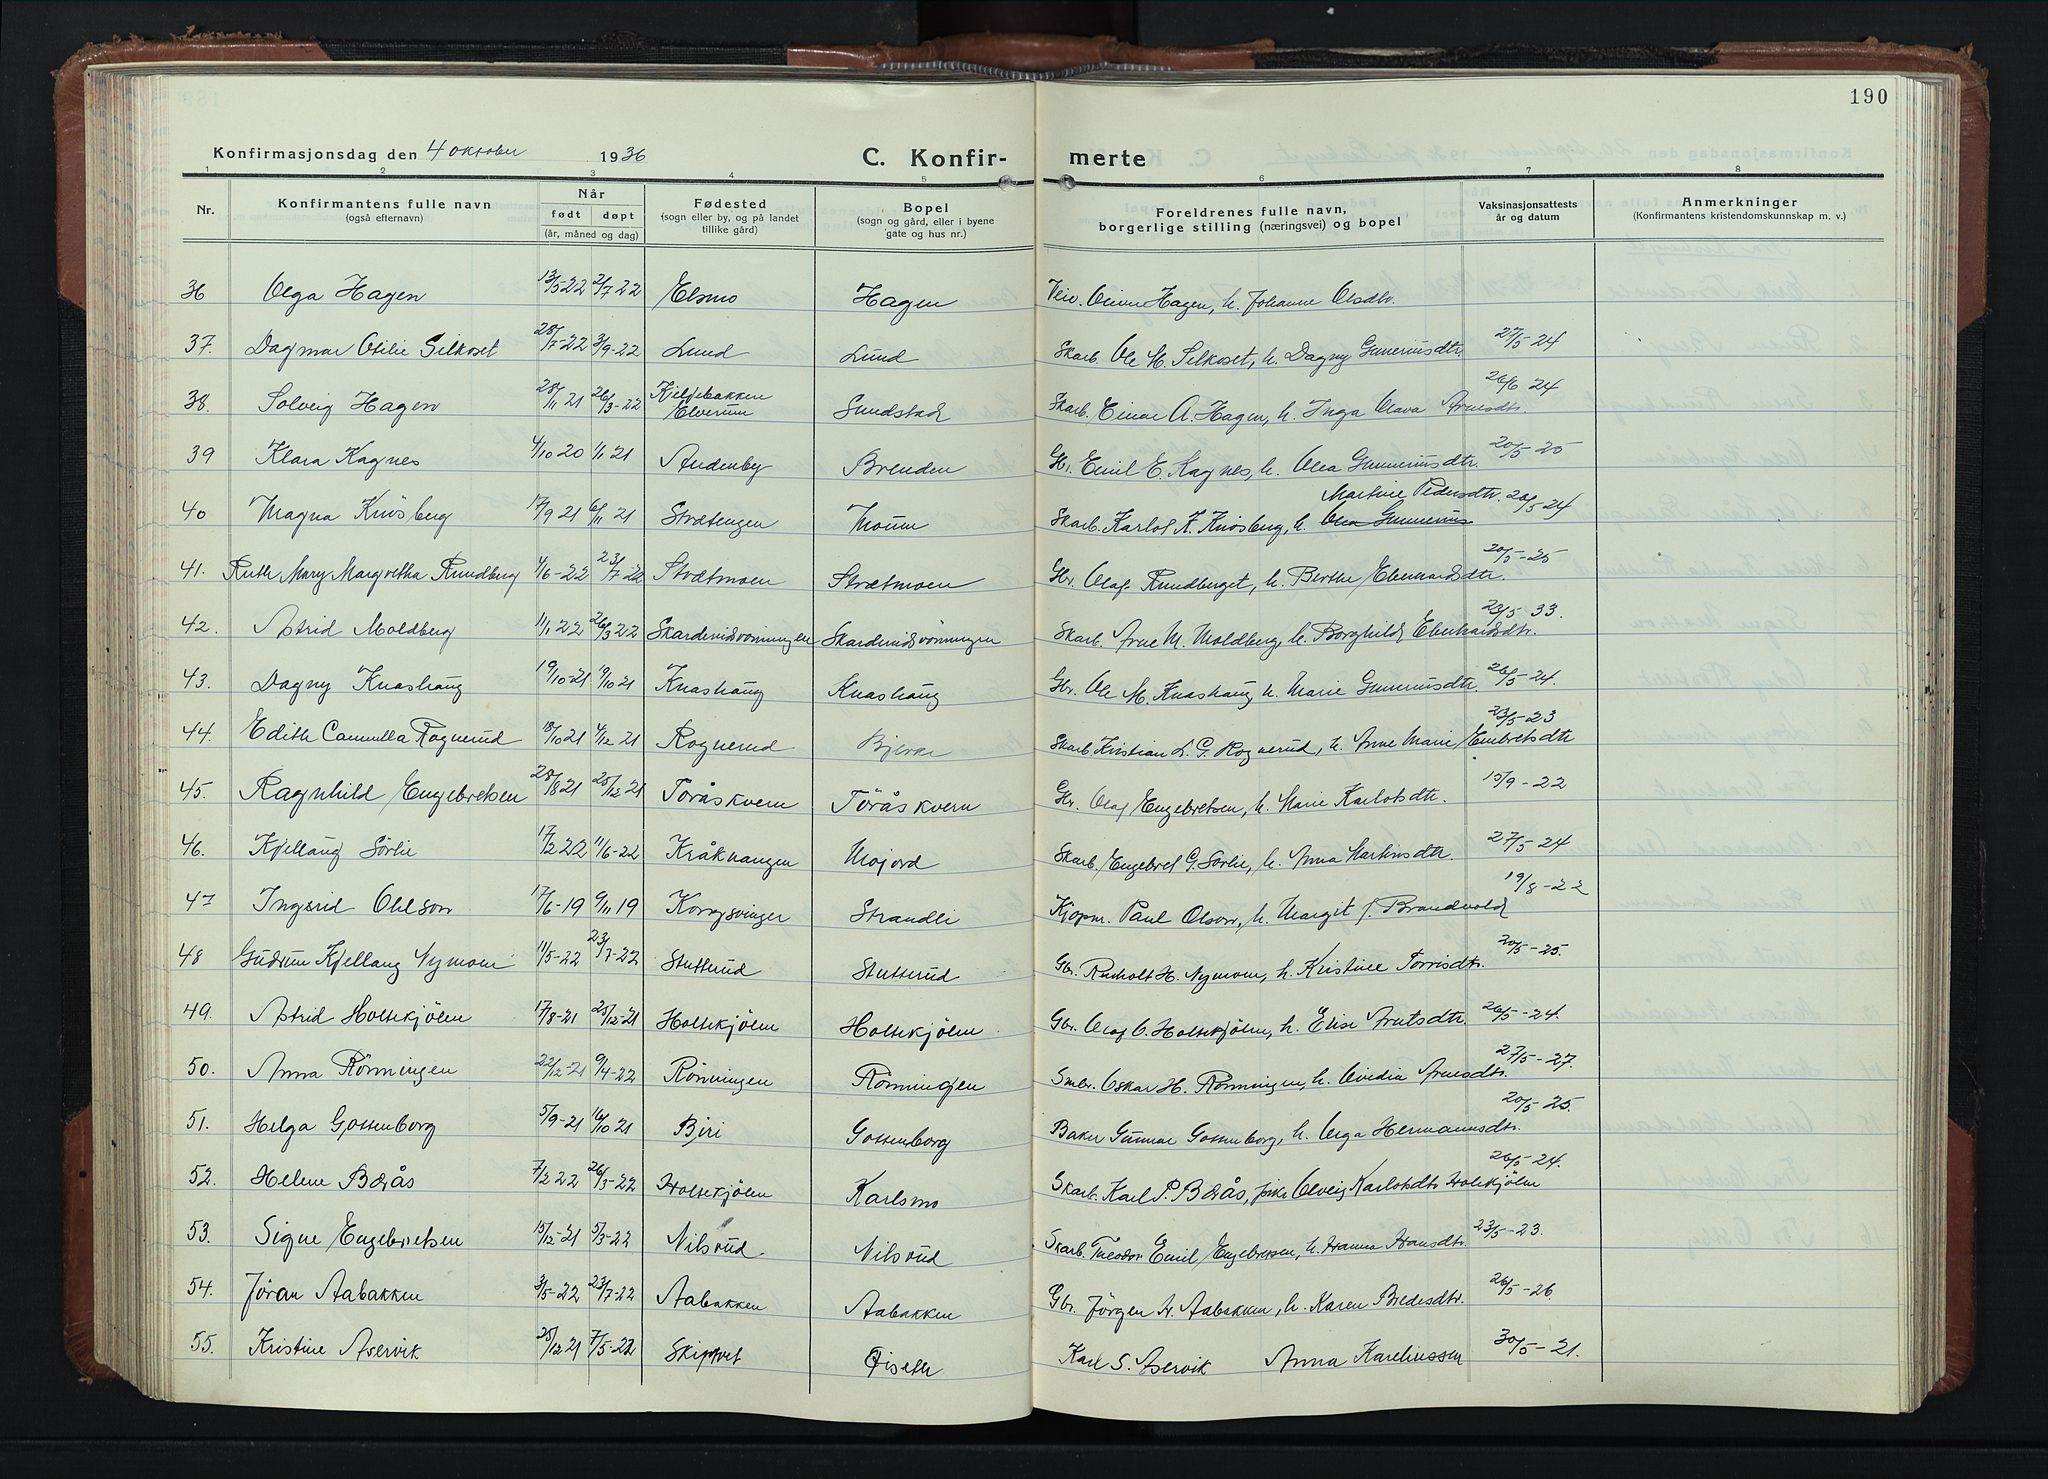 190
Konfirmasjonsdag den 4 oktober 1936 C. Konfir- merte
1 2 3 4 5 6 7 8
Nr. Konfirmantens fulle navn (også efternavn) Når født døpt (år, måned og dag) Fødested (sogn eller by, og på landet tillike gård) Bopel (sogn og gård, eller i byene gate og hus nr.) Foreldrenes fulle navn, borgerlige stilling (næringsvei) og bopel Vaksinasjonsattests år og datum Anmerkninger (Konfirmantens kristendomskunnskap m. v.)
36 Olga Hagen 13/5 22 2/7 22 Elsmo Hagen Hagen, h. Johanne Olsdtr.
37. Dagmar Otilie Silkoset 28/7-22 3/9-22 Lund Lund Skarb. Ole M. Silkoset, h. Dagny Gunneriusdtr. 27/5-24
38. Solveig Hagen 28/11 21 26/3-22 Kjeljebakken Elverum Sundstad Skarb. Einar A. Hagen, h. Inga Olava Arnesdtr. 26/6 24
39 Klara Kagnes 4/10 20 1/1 21 Andenby Brenden Gbr. Emil E. Kagnes, h. Olea Gunneriusdtr. 20/5-25
40 Magna Knisberg 17/9 21 6/11 21 Strætengen Moum Skarb. Karlot K. Knisberg, h. Olea Gunnerius Martine Pedersdtr. 26/5-24
41. Ruth Mary Margretha Rundberg 4/6-22 23/7-22 Strætmoen Strætmoen Gbr. Olaf Rundberget, h. Berthe Eberhardsdtr. 20/5-25
42. Astrid Moldberg 11/1 22 26/3 22 Skardervidsvorningen Skardervidsvorningen Skarb. Arne M. Moldberg, h. Borghild Eberhardsdtr. 23/5 33.
43. Dagny Knashaug 19/10-21 19/10 21 Knashaug Knashaug Gbr. Ole M. Knashaug, h. Marie Gunneriusdtr. 26/5-24.
44. Edith Camilla Rognerud 18/10 21 4/12 21 Rognerud Bjerke Skarb. Kristian L. G. Rognerud, h. Anne Marie Embretsdtr 23/5-23
45. Ragnhild Engebretsen 28/8 21 25/12-21 Töråskvern Töråskvern Gbr. Olaf Engebretsen, h. Marie Karlotsdtr. 15/9-22
46. Kjellaug Sörlie 17/2 22 11/6-22 Kråkvangen Mojord Skarb. Engebret G. Sörlie, h. Anna Martinsdtr. 27/5-24
47 Ingrid Ohlson 17/6-19 9/11 19 Kongsvinger Strandli Kjøpm. Paul Olson, h. Margit f. Brandvold 19/8-22
48 Gudrun Kjellaug Nymoen 11/5-22 23/7-22 Stutterud Stutterud Gbr. Reinholt H. Nymoen, h. Kristine Torrisdtr. 20/5-25.
49. Astrid Holtekjölen 17/8-21 25/12-21 Holtekjölen Holtekjölen Gbr. Olaf O. Holtekjölen, h. Elise Arntsdtr. 26/5-24.
50. Anna Rönningen 22/12-21 9/4-22 Rönningen Rönningen Smbr. Oskar H. Rönningen, h. Ovidia Arnesdtr. 27/5-27.
51. Helga Gossenborg 5/9-21 16/10 21 Biri Gossenborg Baker Gunnar Gossenborg, h. Olga Hermannsdtr. 20/5-25.
52. Helene Bråås 7/2 22 26/3-22 Holtekjölen Karlsmo Skarb. Karl P. Bråås, Olveig Karlotsdtr Holtekjölen 26/5-24.
53. Signe Engebretsen 15/12-21 5/3-22 Nilsrud Nilsrud Skarb. Theodor Emil Engebretsen, h. Hanna Hansdtr. 23/5-23.
54. Jöran Aabakken 3/5-22 23/7-22 Aabakken Aabakken Gbr. Jörgen H. Aabakken, h. Karen Bredesdtr. 26/5-26.
55. Kristine Aservik 25/12 21 7/5-22 Skiptvet Qiseth Karl S. Aservik Anna Karelinssen 30/5-21.